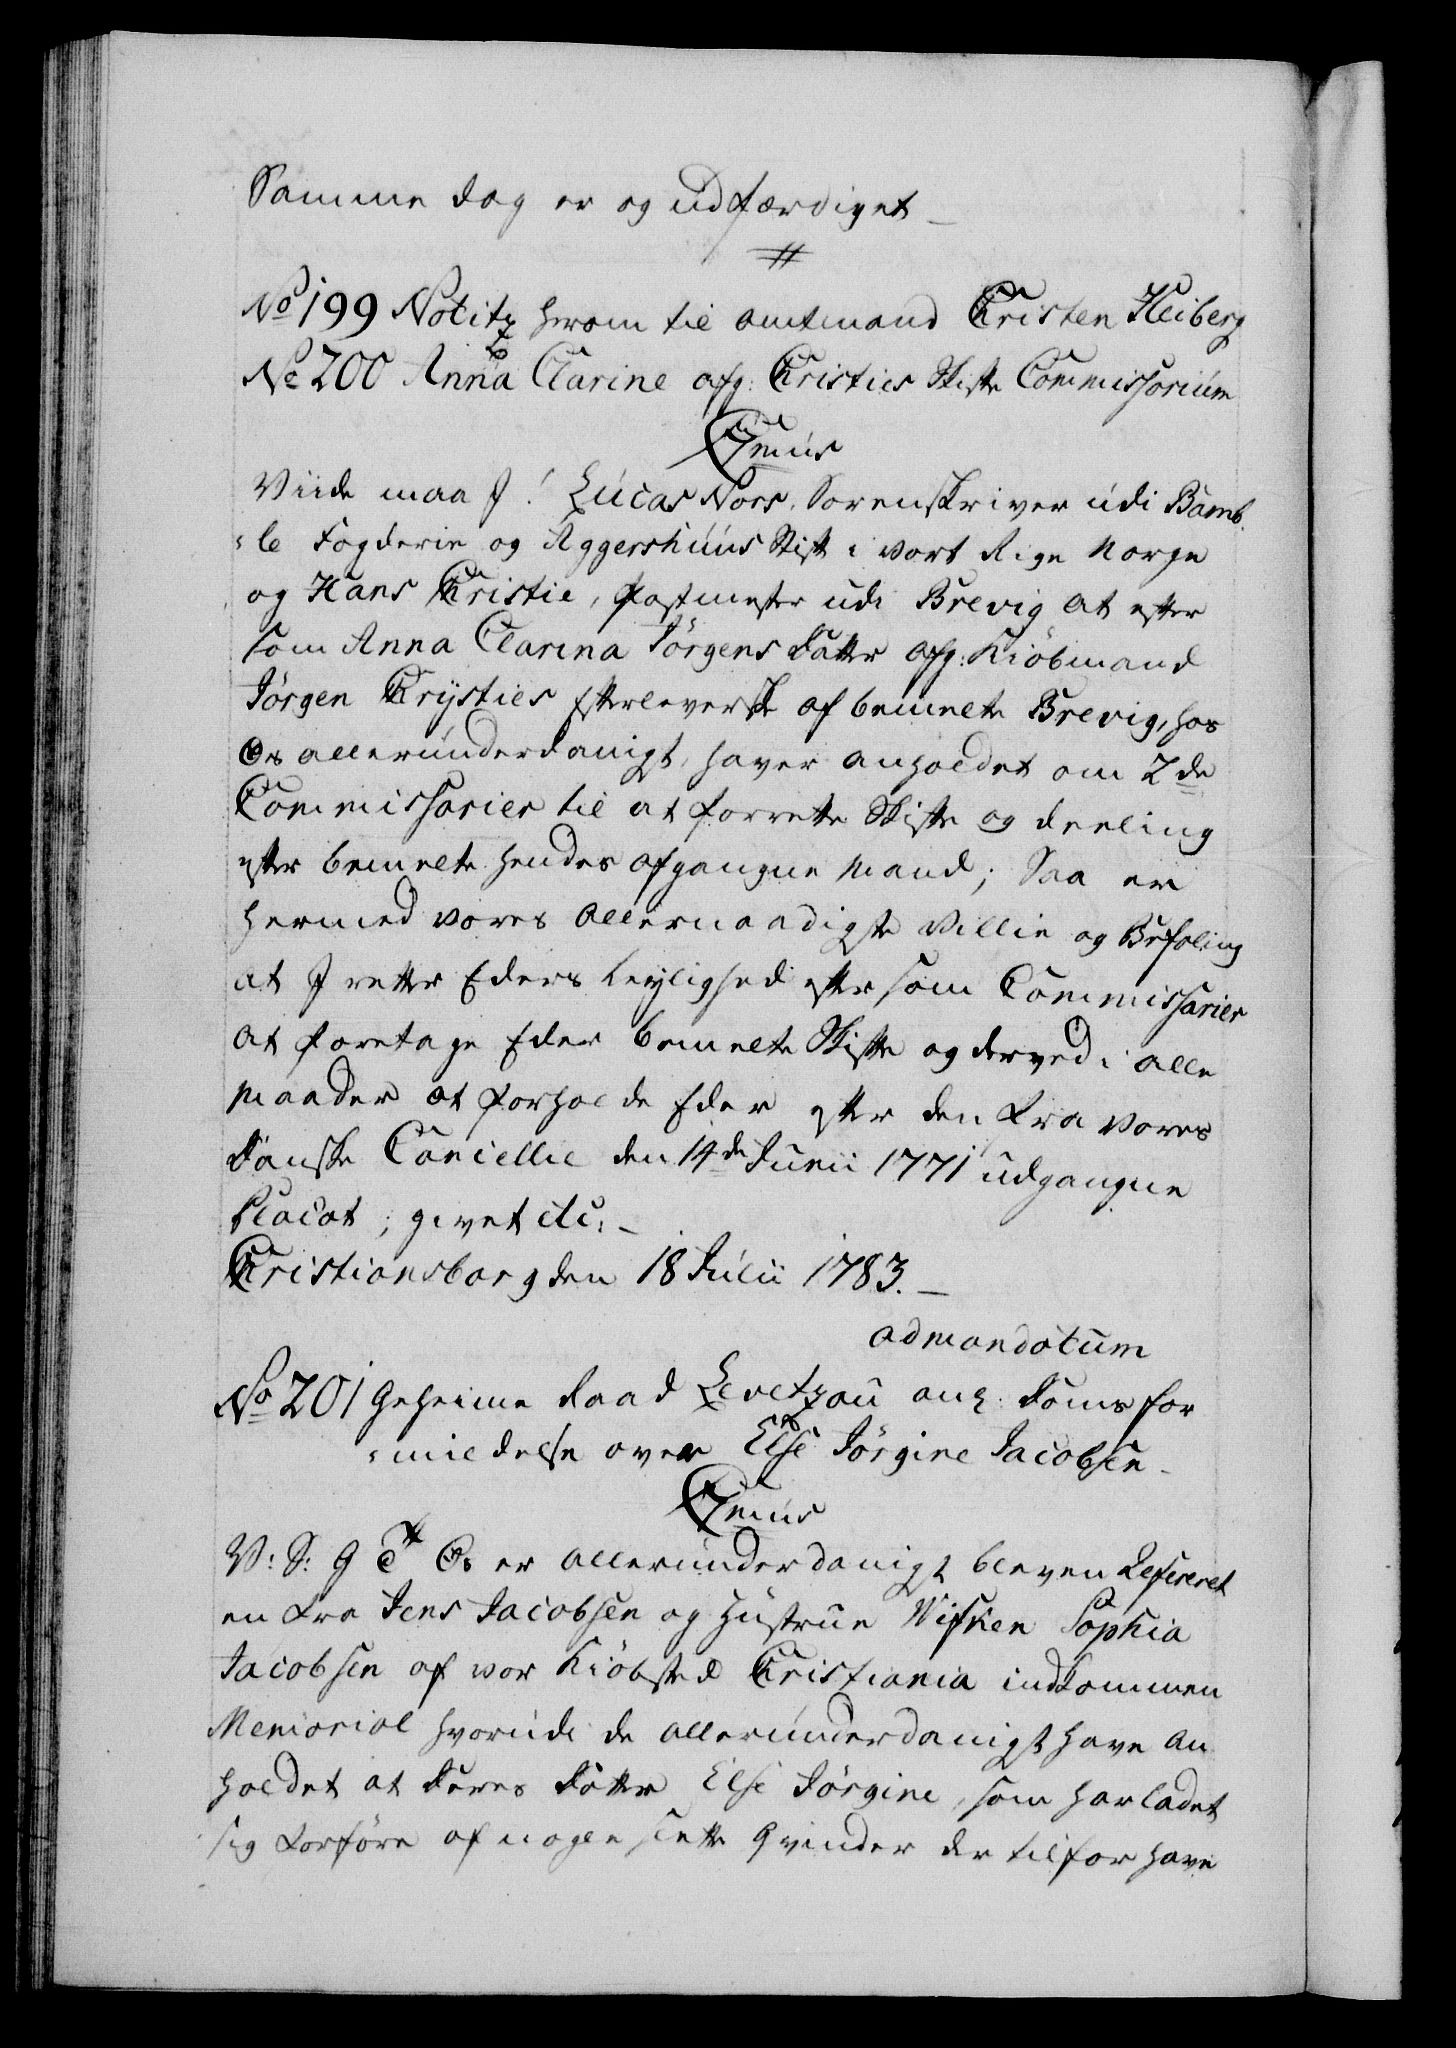 Samme dag er og udfærdiget
No 199 Notitz herom til Amtmand Christen Heiberg
No 200 Anna Clarine afg: Christies Skifte Commissorium
C7mus
Viide maa I! Lucas Nors, Sorenskriver udi Bamb
le Fogderie og Aggershuus Stift i vort Rige Norge
og Hans Christie, Postmester udi Brevig at efter
som Anna Clarina Jörgens Datter afg: Kiöbmand
Jörgen Chrysties Efterleverske af bemelte Brevig, hos
Os allerunderdanigst haver anholdet om 2de
Commissarier til at forrette Skifte og deeling
efter bemelte hendes afgangne Mand; Saa er
hermed vores Allernaadigste Villie og Befaling
at I retter Eders Leylighed efter som Commissarier
at foretage Eder bemelte Skifte og derved i alle
Maader at forholde Eder efter den fra vores
Danske Cancellie den 14de Junii 1771 udgangne
Placat; givet etc:
Christiansborg den 18 Julii 1783.
ad mandatum
No 201 Geheime Raad Levetzau ang: Doms for
mildelse over Else Jörgine Jacobsen
C7mus
V: S: G T Os er allerunderdanigst bleven Refereret
en fra Jens Jacobsen og Hustrue Wifken Sophia
Jacobsen af vor Kiöbsted Christiania indkommen
Memorial hvorudi de allerunderdanigst have an
holdet at deres Datter Else Jörgine, som har ladet
sig forföre af nogle slette Qvinder der tilforn have